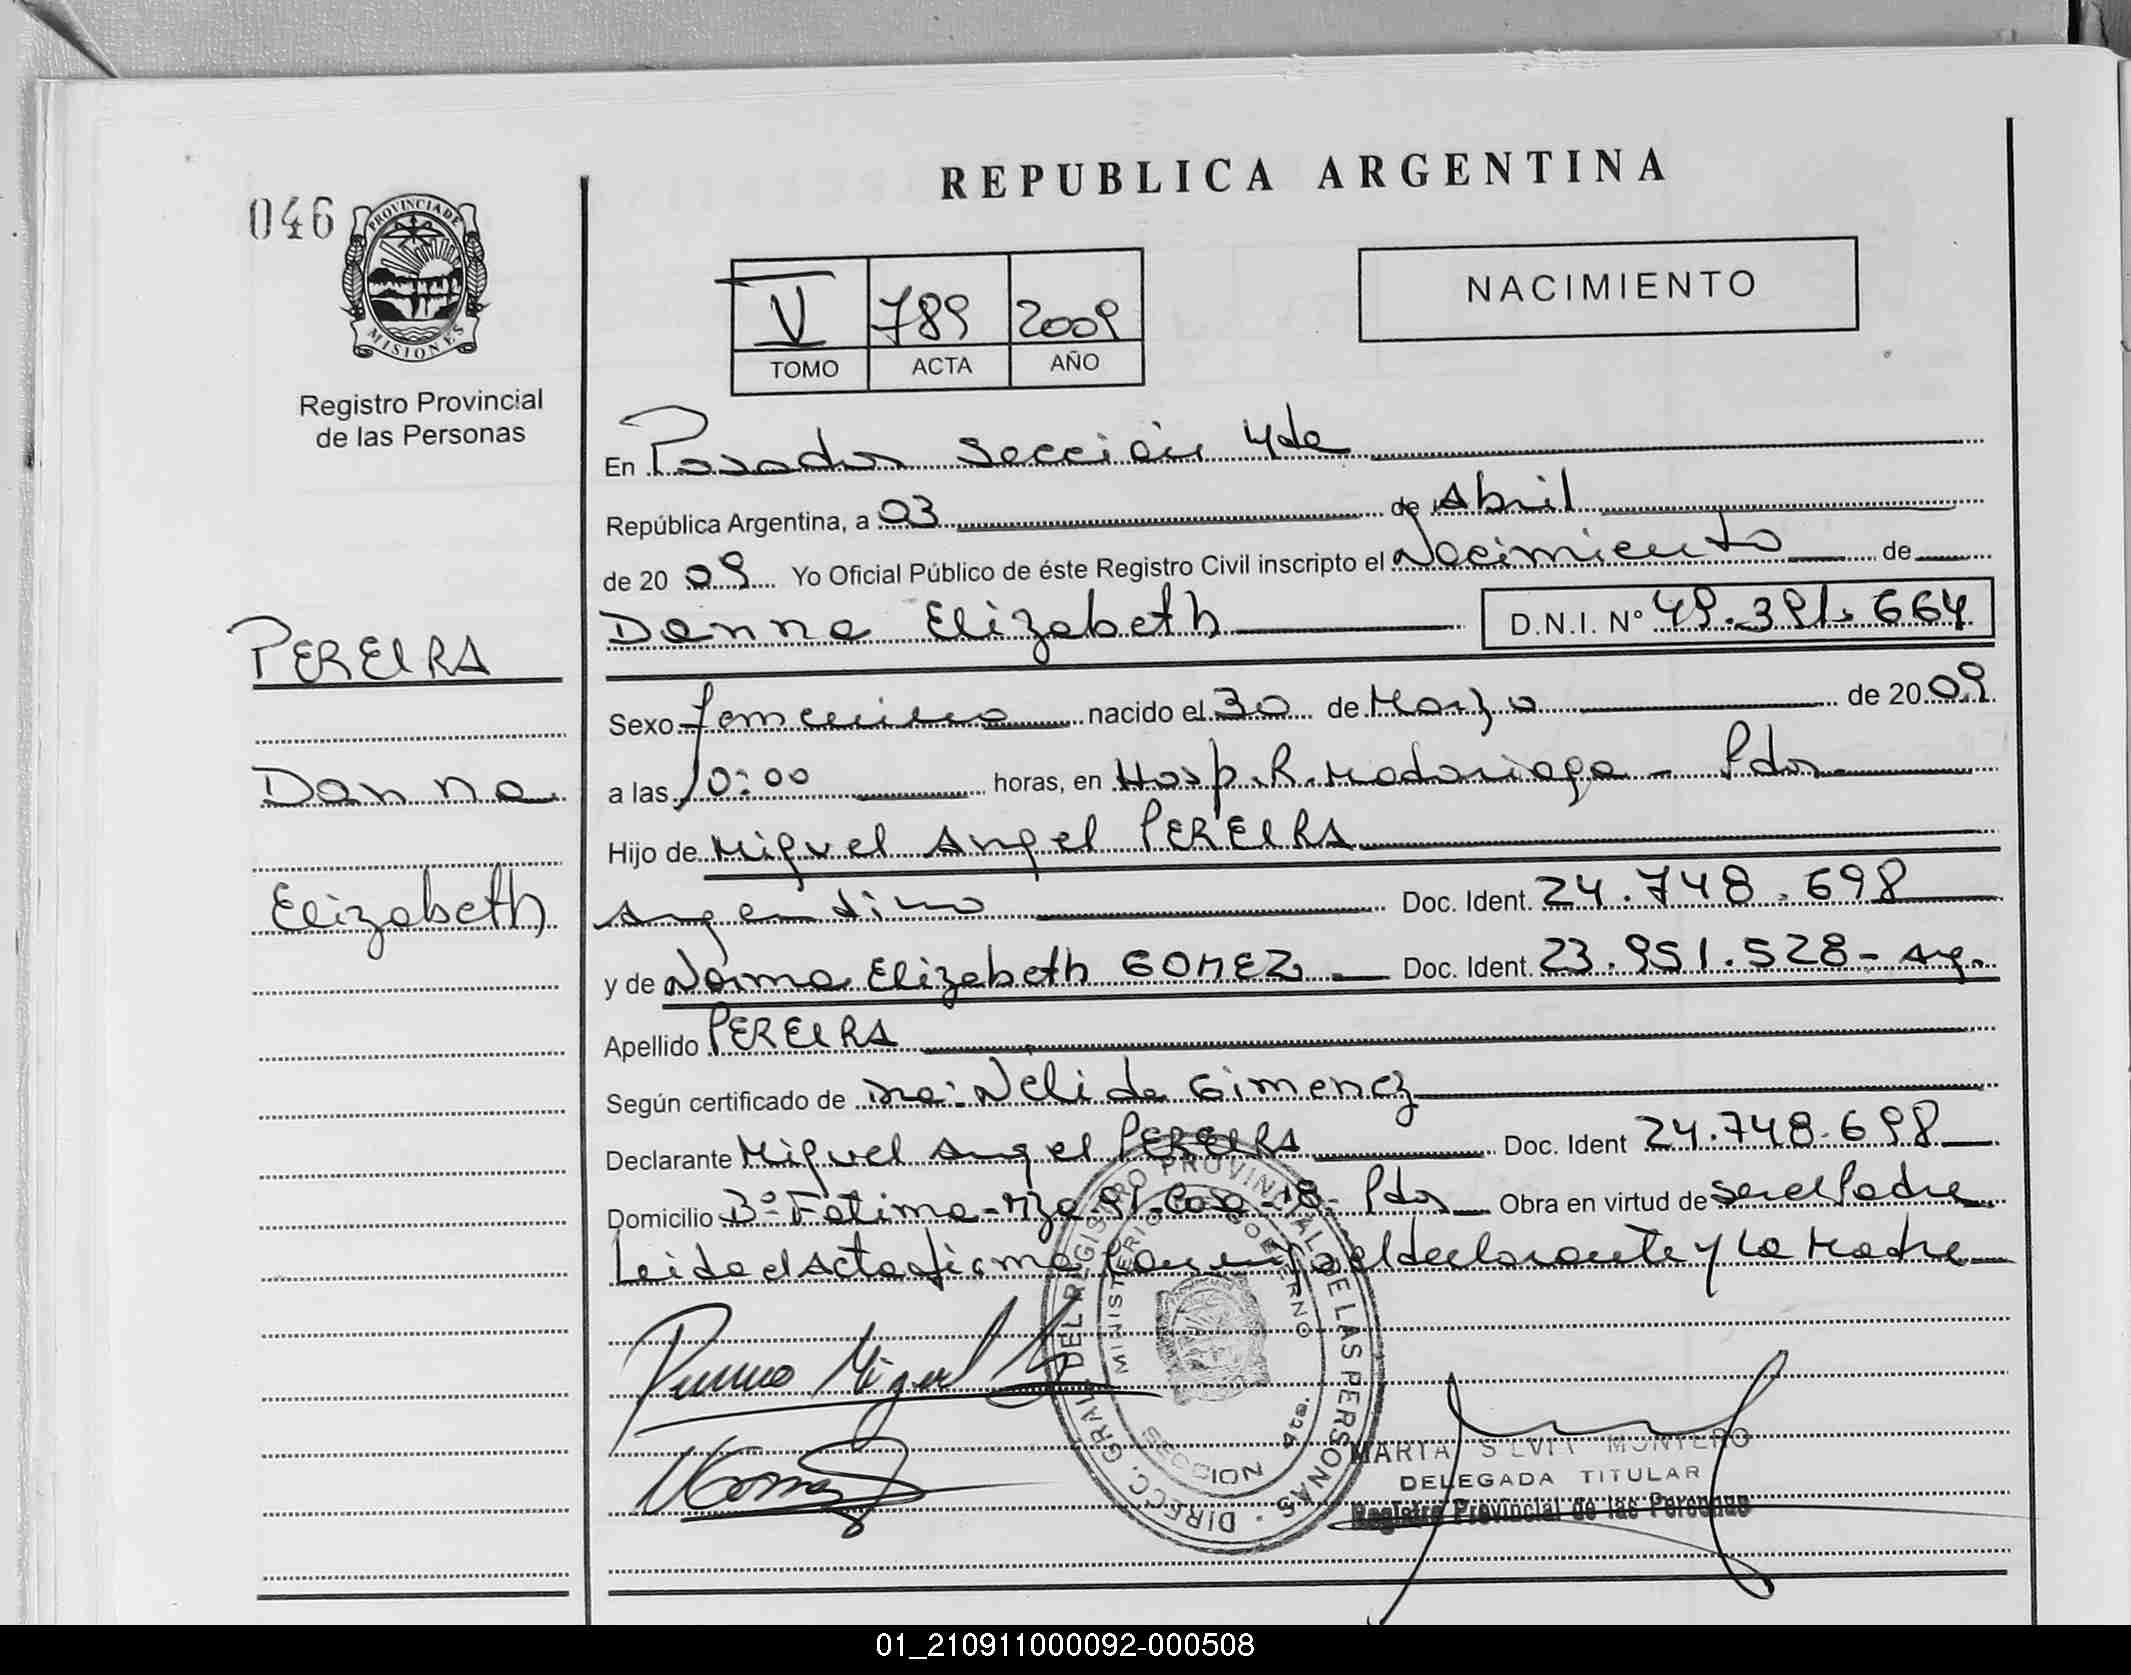 REPUBLICA ARGENTINA
046
PROVINCIA DE
MISIONES
Registro Provincial
de las Personas
NACIMIENTO
V 789 2009
TOMO ACTA AÑO
En Posadas Sección 4ta
República Argentina, a 03 de Abril
de 20 09 Yo Oficial Público de éste Registro Civil inscripto el Nacimiento de
Danna Elizabeth D.N.I. Nº 49.391.664
PEREIRA
Danna
Elizabeth
Sexo femenino nacido el 30 de Marzo de 20 09
a las 10:00 horas, en Hosp. R. Madariaga - Pdas
Hijo de Miguel Angel PEREIRA
Argentino Doc. Ident. 24.748.698
y de Norma Elizabeth GOMEZ Doc. Ident. 23.951.528 - Arg.
Apellido PEREIRA
Según certificado de Dra: Nelida Gimenez
Declarante Miguel Angel PEREIRA Doc. Ident 24.748.698
Domicilio Bº Fatima - Mza 91 - Casa - 18 - Pdas Obra en virtud de ser el Padre
Leida el Acta firma conmigo el declarante y La Madre
Miguel
DIRECC. GRAL. DEL REGISTRO PROVINCIAL DE LAS PERSONAS
MINISTERIO DE GOBIERNO
4ta.
MARIA SILVIA MONTERO
DELEGADA TITULAR
Registro Provincial de las Personas
01_210911000092-000508